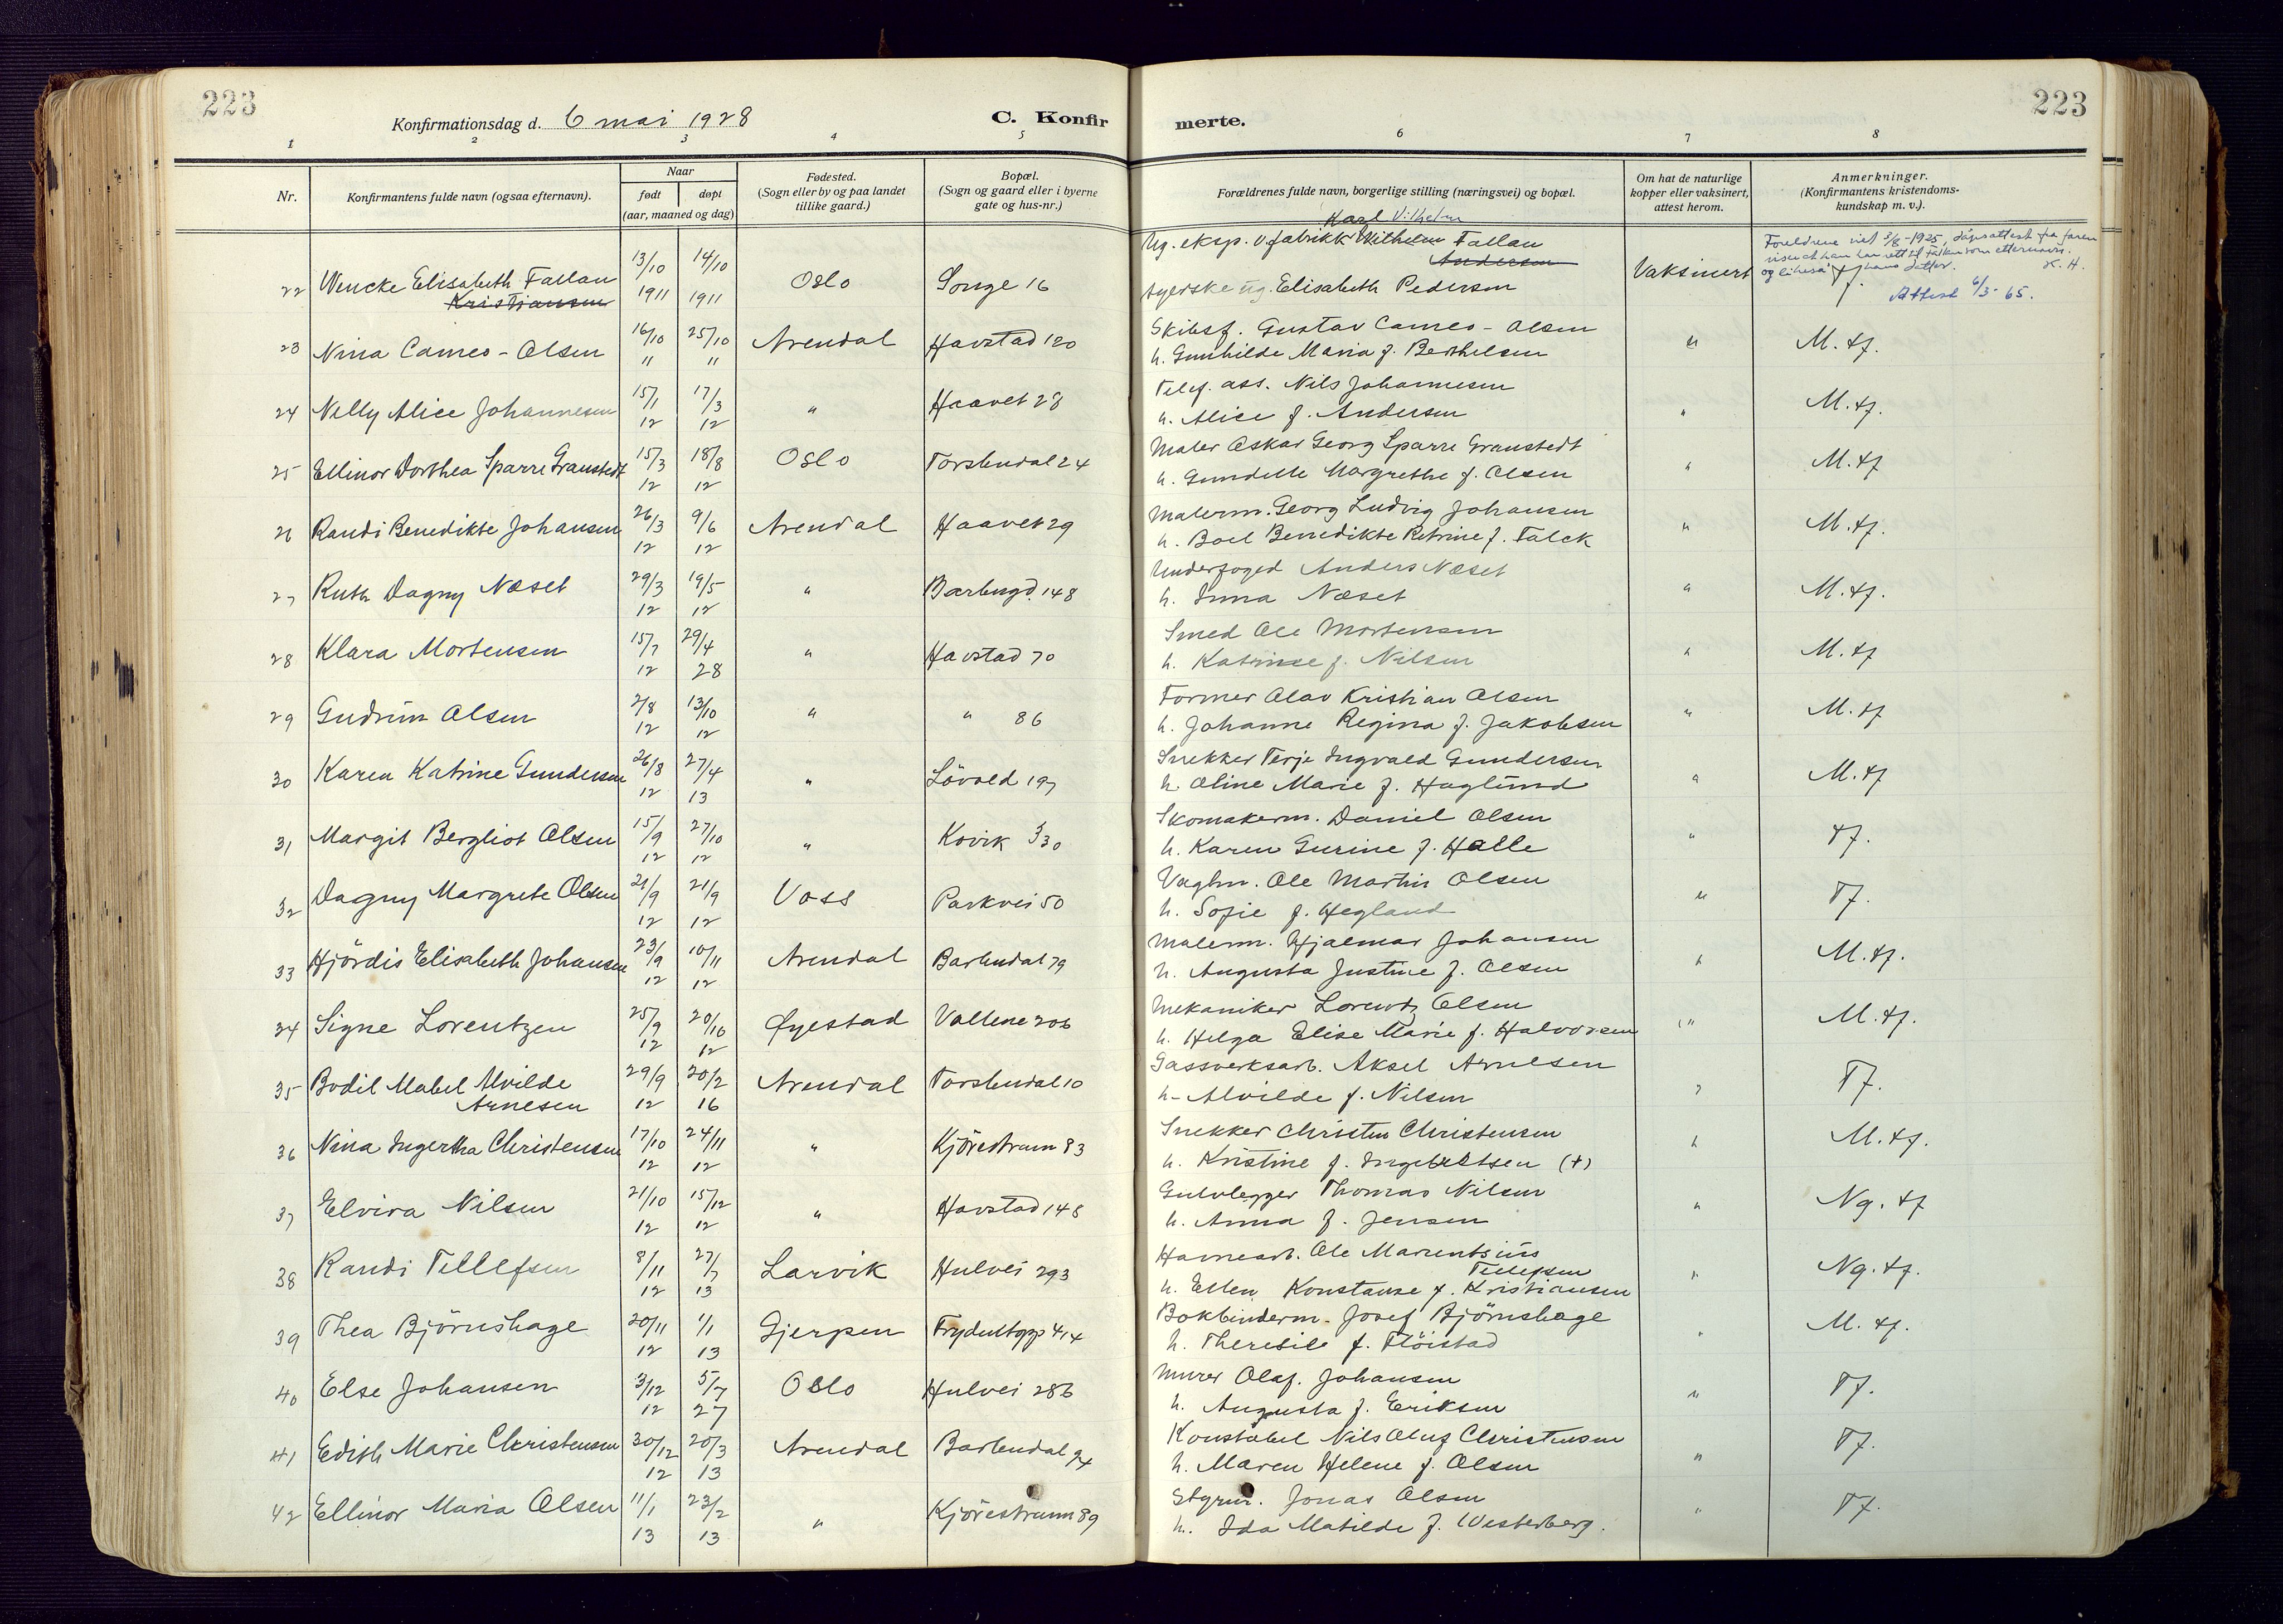 223
223
Konfirmationsdag d. 6 mai 1928
C. Konfirmerte.
1 2 3 4 5 6 7 8
Nr.
Konfirmantens fulde navn (ogsaa efternavn).
Naar
født døpt
(aar, maaned og dag)
Fødested.
(Sogn eller by og paa landet
tillike gaard.)
Bopæl.
(Sogn og gaard eller i byerne
gate og hus-nr.)
Forældrenes fulde navn, borgerlige stilling (næringsvei) og bopæl.
Om hat de naturlige
kopper eller vaksinert,
attest herom.
Anmerkninger.
(Konfirmantens kristendoms-
kundskap m. v.).
Karl Vilhelm
22 Wencke Elisabeth Fallan 13/10 1911 14/10 1911 Oslo Songe 16 Ug. eksp. v. fabrikk Wilhelm Fallan Vaksinert
Kristiansen Andersen
ug. Elisabeth Pedersen
Foreldrene viet 3/8-1925, dåpsattest fra faren
hans datter. K. H.
Attest 6/5-65.
23 Nina Cameo-Olsen 16/10 11 25/10 11 Arendal Havstad 120 Skibsf. Gustav Cameo-Olsen " M. tf.
h. Gunhilde Maria f. Berthelsen
24 Nelly Alice Johannesen 15/1 12 17/3 12 " Haavet 28 Telef. ass. Nils Johannesen " M. tf.
h. Alice f. Andersen
25 Ellinor Dorthea Sparre Granstedt 15/3 12 18/8 12 Oslo Torsbudal 24 Maler Oskar Georg Sparre Granstedt " M. tf
h. Gundelle Margrethe f. Olsen
26 Randi Benedikte Johansen 26/3 12 9/6 12 Arendal Haavet 29 Malerm. Georg Ludvig Johansen " M. tf.
h. Boel Benedikte Petrine f. Falck
27 Ruth Dagny Næset 29/3 12 19/5 12 " Barbugd. 148 Underfoged Anders Næset " M. tf.
h. Inna Næset
28 Klara Mortensen 15/7 12 29/4 28 " Havstad 70 Smed Ole Mortensen " M. tf
h. Katrine f. Nilsen
29 Gudrun Olsen 2/8 12 13/10 12 " " 86 Former Olav Kristian Olsen " M. tf
h. Johanne Regina f. Jakobsen
30 Karen Katrine Gundersen 26/8 12 27/4 13 " Lövold 197 Snekker Terje Ingvald Gundersen " M. tf
h. Oline Marie f. Haglund
31 Margit Bergliot Olsen 15/9 12 27/10 12 " Kovik 330 Skomakerm. Daniel Olsen " tf.
h. Karen Gurine f. Halle
32 Dagny Margrete Olsen 21/9 12 21/9 12 Voss Parkvei 50 Vagtm. Ole Martin Olsen " Tf.
h. Sofie f. Hegland
33 Hjördis Elisabeth Johansen 23/9 12 10/11 12 Arendal Barbudal 79 Malerm. Hjalmar Johansen " M. tf.
h. Augusta Justine f. Olsen
34 Signe Lorentzen 25/9 12 20/10 12 Øyestad Vallene 206 Mekaniker Lorentz Olsen " M. tf.
h. Helga Elise Marie f. Halvorsen
35 Bodil Mabel Alvilde 29/9 12 20/2 16 Arendal Torsbudal 10 Gassverksarb. Aksel Arnesen " Tf.
Arnesen h. Alvilde f. Nilsen
36 Nina Ingertha Christensen 17/10 12 24/11 12 " Kjörestrum 83 Snekker Christen Christensen " M. tf.
h. Kristine f. Ingebretsen (+)
37 Elvira Nilsen 21/10 12 15/12 12 " Havstad 148 Gulvlegger Thomas Nilsen " Ng. tf
h. Anna f. Jensen
38 Randi Tellefsen 8/11 12 27/7 13 Larvik Hulvei 293 Havnearb. Ole Marentsius " Ng. tf.
Tellefsen
h. Ellen Konstanse f. Kristiansen
39 Thea Björnshage 20/11 12 1/1 13 Gjerpen 414 Bokbinderm. Josef Björnshage " M. tf.
h. Theresile f. Flöistad
40 Else Johansen 3/12 12 5/7 27 Oslo Hulvei 286 Murer Olaf. Johansen " Tf.
h. Augusta f. Eriksen
41 Edith Marie Christensen 30/12 12 20/3 13 Arendal Barbudal 94 Konstabel Nils Oluf Christensen " Tf.
h. Maren Helene f. Olsen
42 Ellinor Maria Olsen 11/1 13 23/2 13 " Kjörestrum 89 Styrm. Jonas Olsen " Tf.
h. Ida Matilde f. Westerberg.